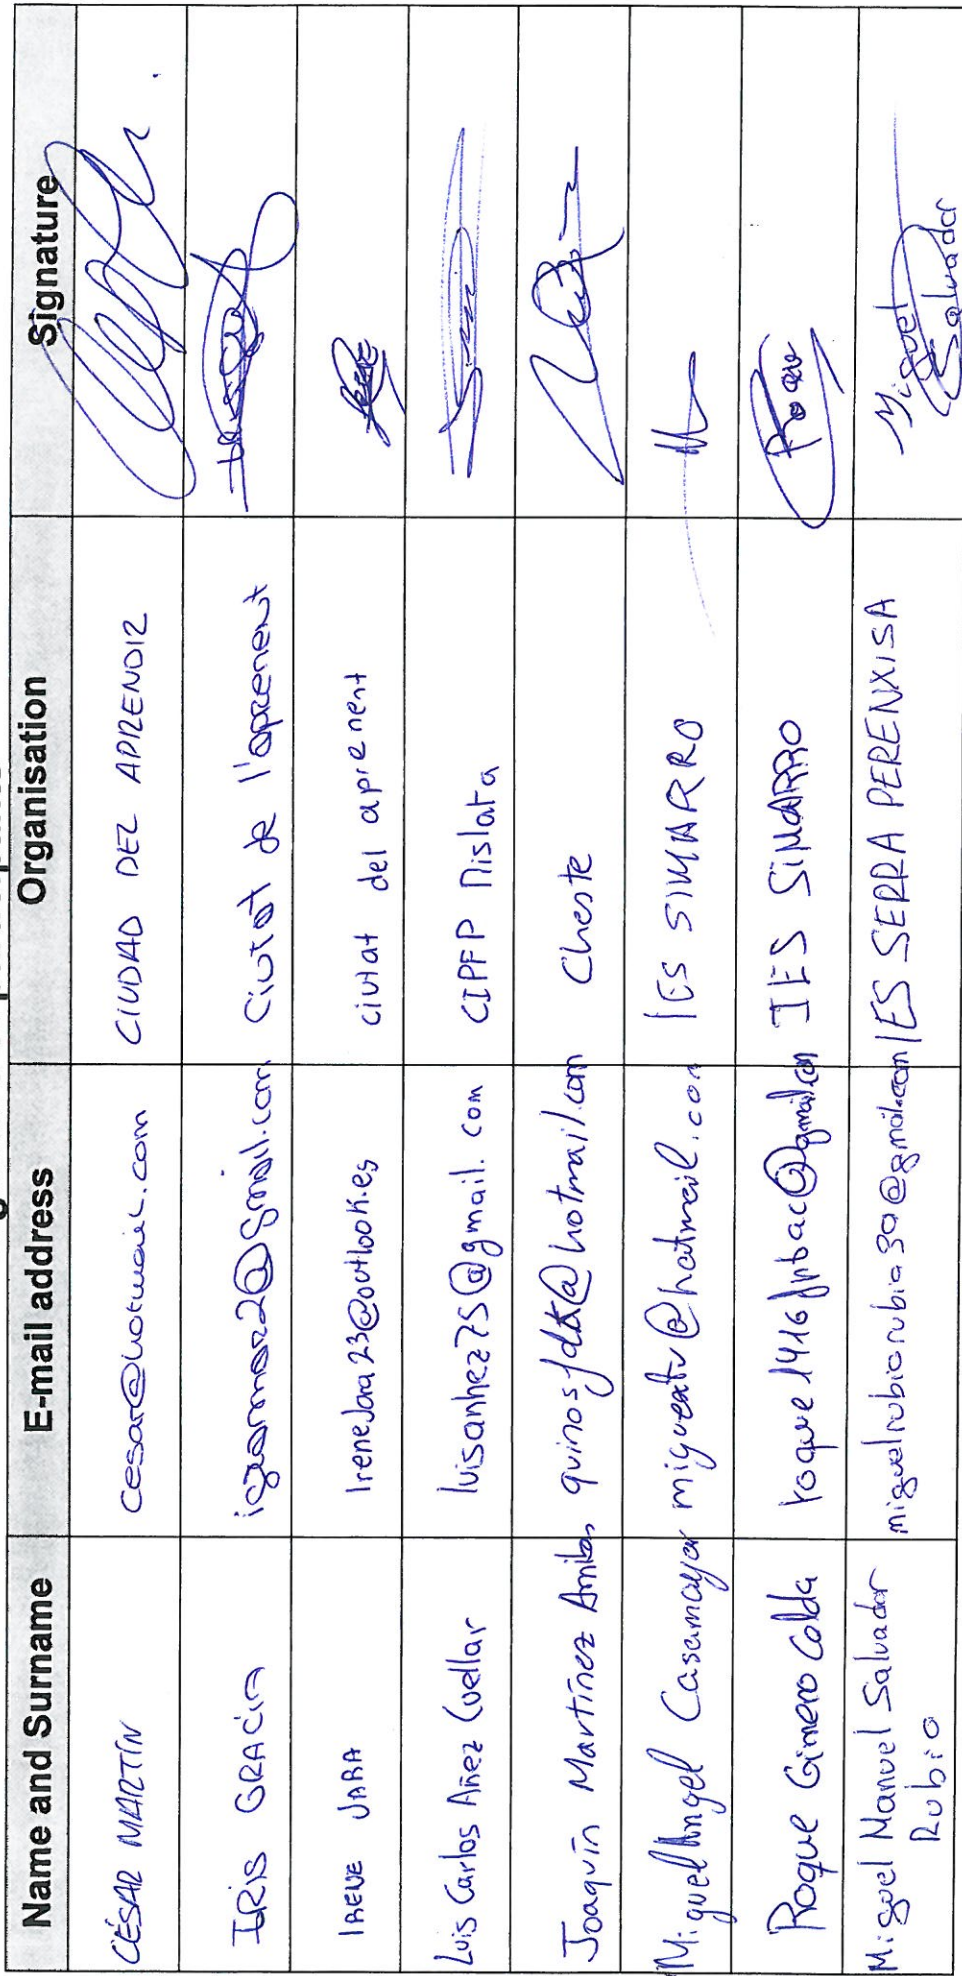 Name and Surname E-mail address Organisation Signature
CÉSAR MARTÍN cesar@hotmail.com CIUDAD DEL APRENDIZ
IRIS GRACIA Ciutat de l'aprenent
IRENE JARA IreneJara23@outlook.es ciutat del aprenent Irene
Luis Carlos Añez Cuellar luisanhez75@gmail.com CIPFP Mislata
Joaquín Martínez @hotmail.com Cheste
Miguel Angel Casamayor @hotmail.com IES SIMARRO
Roque Gimeno @gmail.com IES SIMARRO Roque
Miguel Manuel Salvador miguelrubiorubio30@gmail.com IES SERRA PERENXISA Miguel
Rubio Salvador